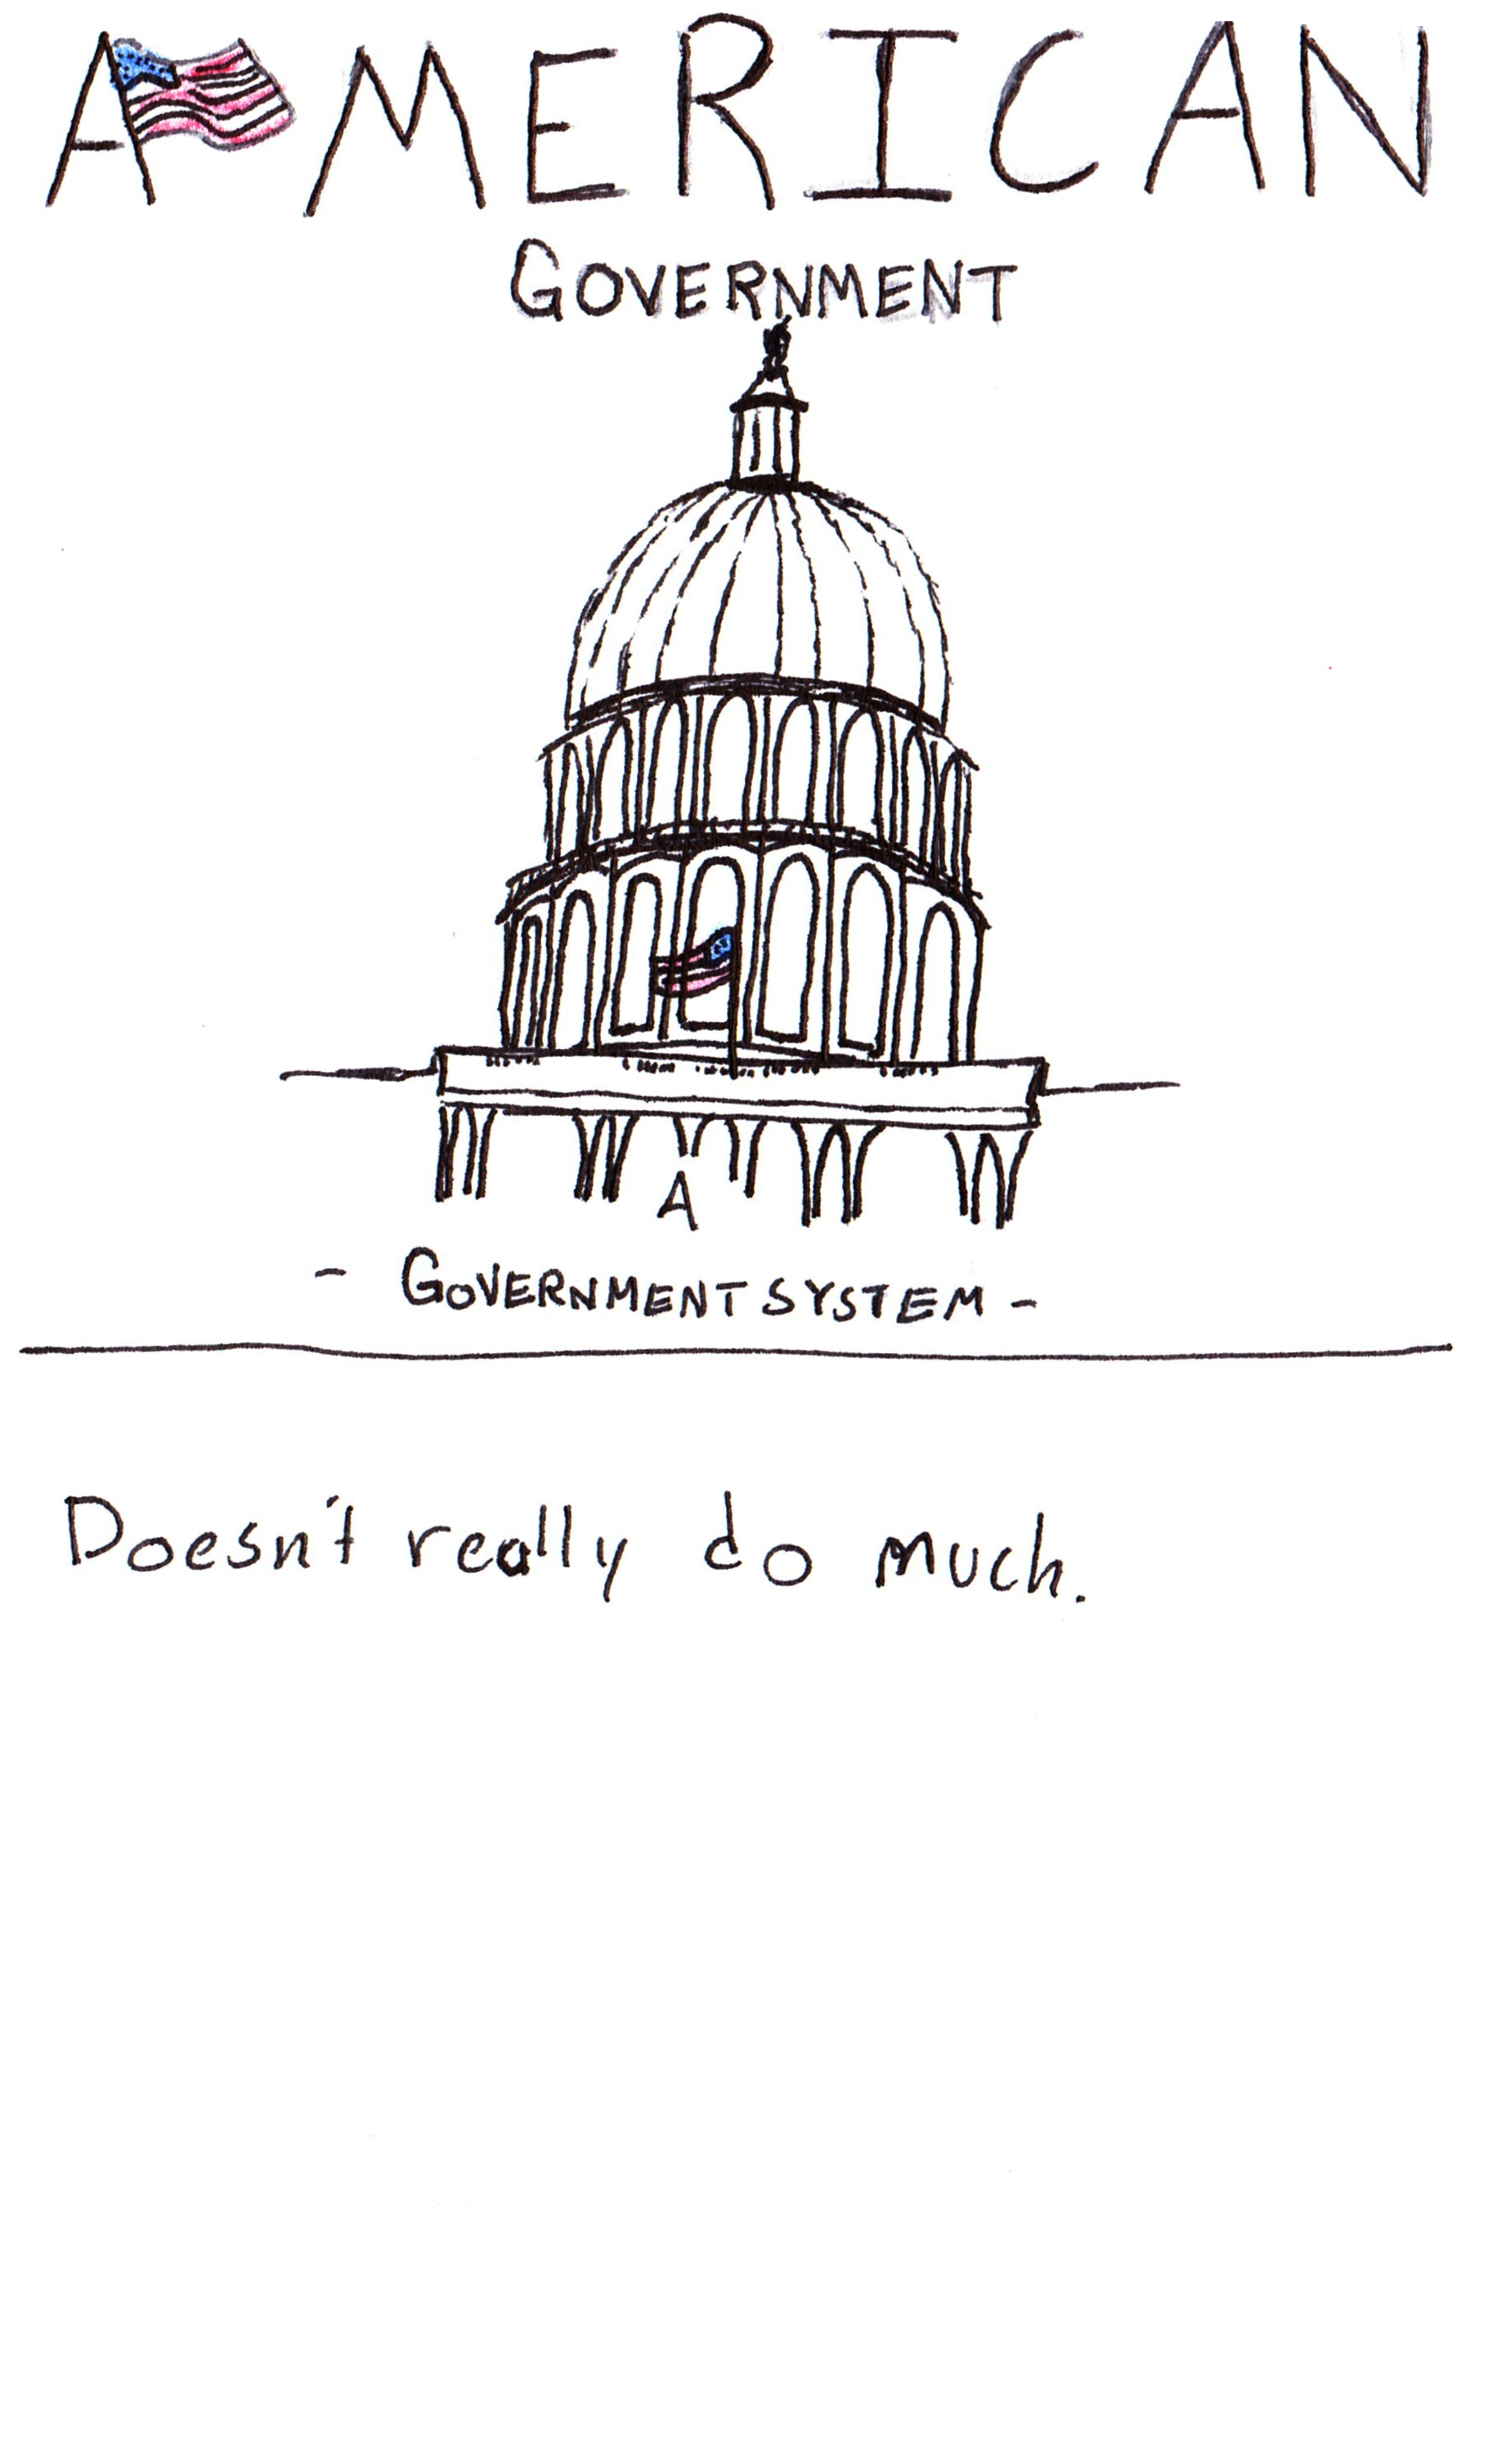 AMERICAN
GOVERNMENT
A
- GOVERNMENT SYSTEM -
Doesn't really do much.